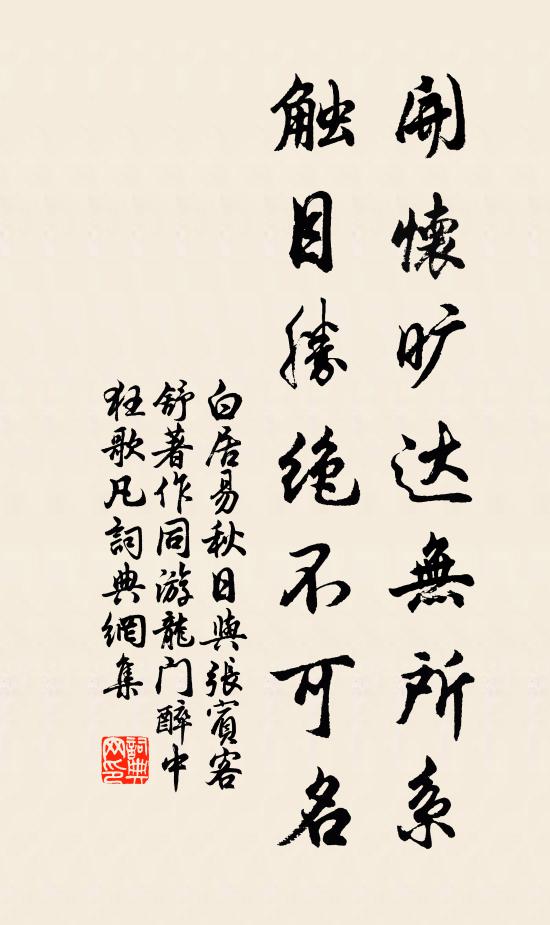 開懷旷达無所系
触目勝絶不可名
白居易秋日與張賓客
舒著作同游龍门醉中
狂歌凡詞典網集
詞典
网印